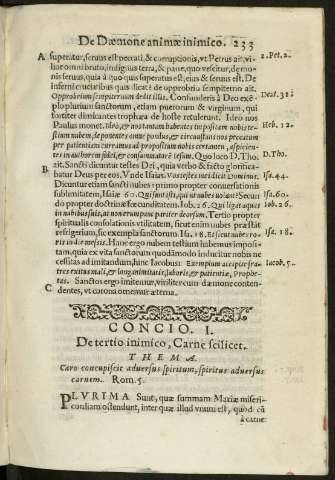 De Dæmone animæ inimico. 233
A superatur, seruus est peccati, & corruptionis, vt Petrus ait, vi- 2. Pet. 2.
lior omni bruto, indignus terra, & pane, quo vescitur, dæmo-
nis seruus, quia à quo quis superatus est, eius & seruus est. De
infernci cruciatibus quis dicat? de opprobrio sempiterno ait.
Opprobrium sempiternum dedit illis. Confunderis à Deo exẽ-
plo plurium sanctorum, etiam puerorum & virginum, qui
fortiter dimicantes trophæa de hoste retulerunt. Ideo nos
Paulus monet. Ideo, & nos tantam habentes impositam nubem te-
stium nubem, deponentes omne pondus, & circunstans nos peccatum
per patientiam curramus ad propositum nobis certamen, aspicien-
tes in authorem fidei, & consummatorẽ Iesum. Quo loco D. Tho.
ait. Sancti dicuntur testes Dei, quia verbo & facto glorifica-
B batur Deus per eos. Vnde Isaias. Vos testes mei dicit Dominus.
Dicuntur etiam sancti nubes: primo propter conuersationis
sublimitatem, Isaiæ 60. Qui sunt isti, qui vt nubes volant? Secun
do propter doctrinæ fœcunditatem. Iob. 26. Qui ligat aquas
in nubibus suis, vt non erumpant pariter deorsum. Tertio propter
spiritualis consolationis vtilitatem, sicut enim nubes præstat
refrigerium, sic exempla sanctorum. Isa. 18. Et sicut nubes ro-
ris in die messis. Hanc ergo nubem testium habemus imposi-
tam, quia ex vita sanctorum quodãmodo inducitur nobis ne
cessitas ad imitandum, hinc Iacobus: Exemplum accipite fra-
tres exitus mali, & longanimitatis, laboris, & patientiæ, Prophe-
tas. Sanctos ergo imitemur, viriliter cum dæmone conten-
C dentes, vt corona ornemur æterna.
Deut. 32
Heb. 12.
D. Tho.
Isa. 44.
Isa. 60.
Iob. 26.
Isa. 18.
Iacob. 5.
CONCIO. I.
De tertio inimico, Carne scilicet.
THEMA.
Caro concupiscit aduersus spiritum, spiritus aduersus
carnem. Rom. 5.
PLVRIMA Sunt, quæ summam Mariæ miseri-
cordiam ostendunt, inter quæ illud vnum est, quod cũ
à carne